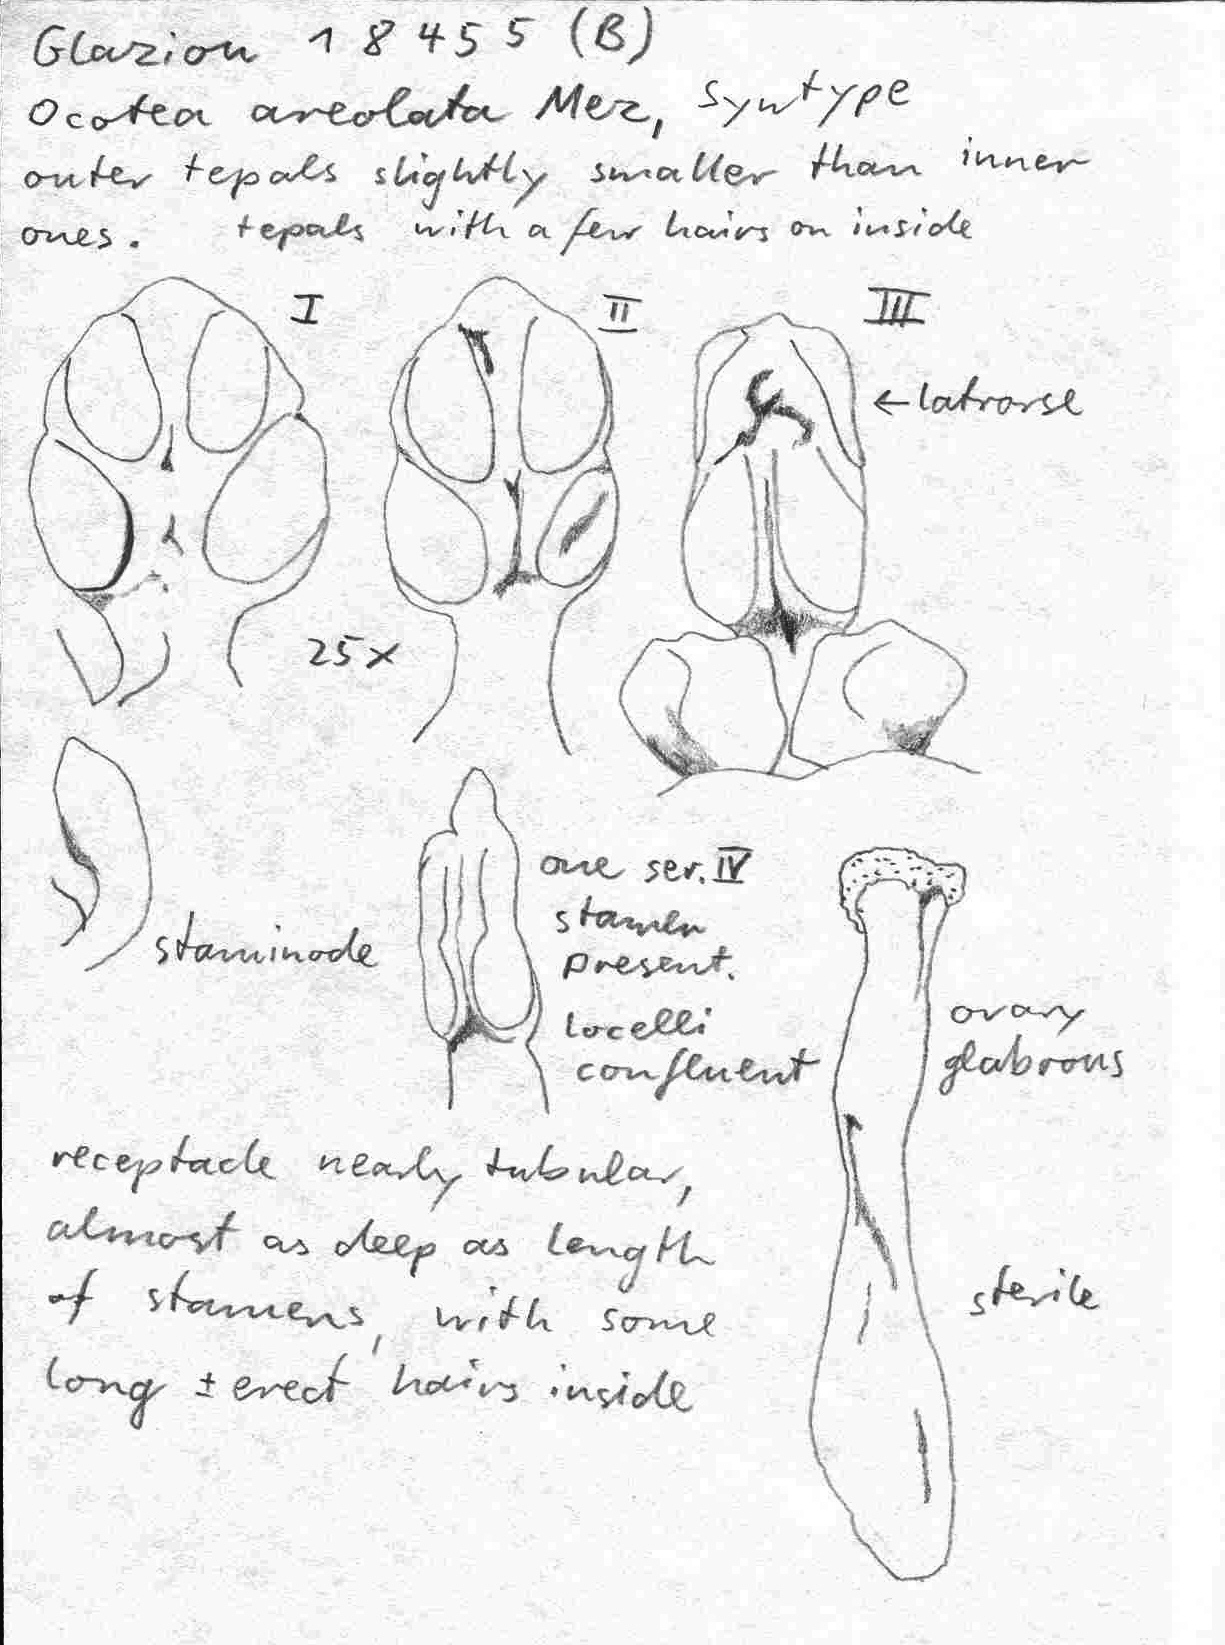 Glaziou 18455 (B)
Ocotea areolata Mez, syntype
outer tepals slightly smaller than inner
ones. tepals with a few hairs on inside
I
II
III
← latrorse
25x
staminode
one ser. IV
stamen
present.
locelli
confluent
ovary
glabrous
receptacle nearly tubular,
almost as deep as length
of stamens, with some
long ± erect hairs inside
sterile